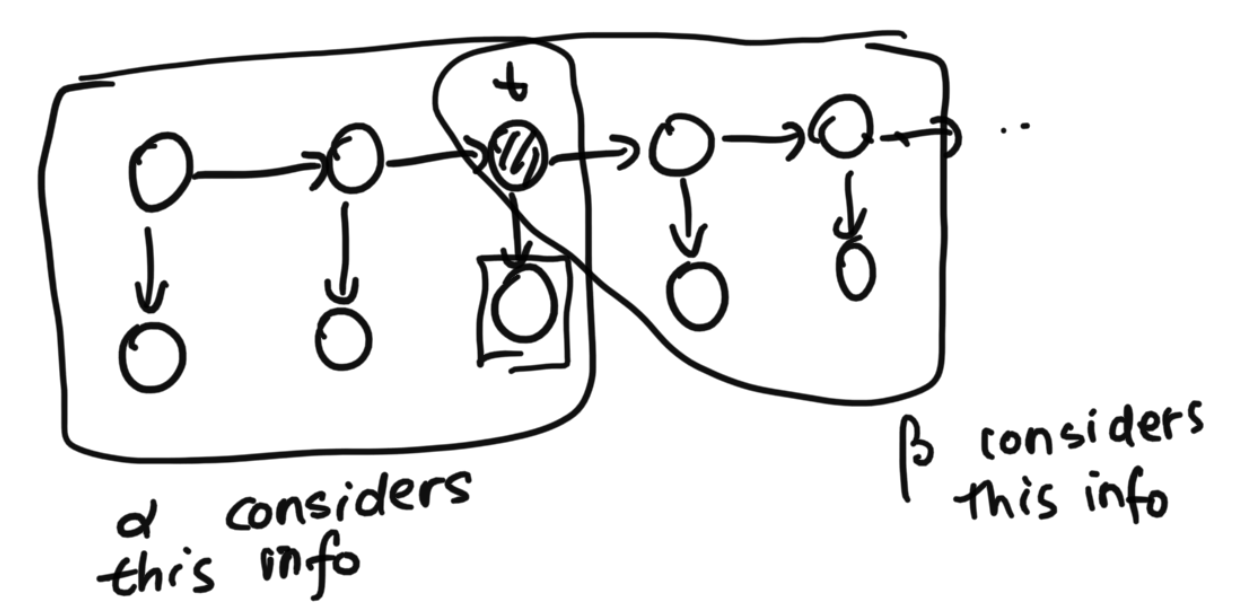 t
α considers
this info
β considers
this info